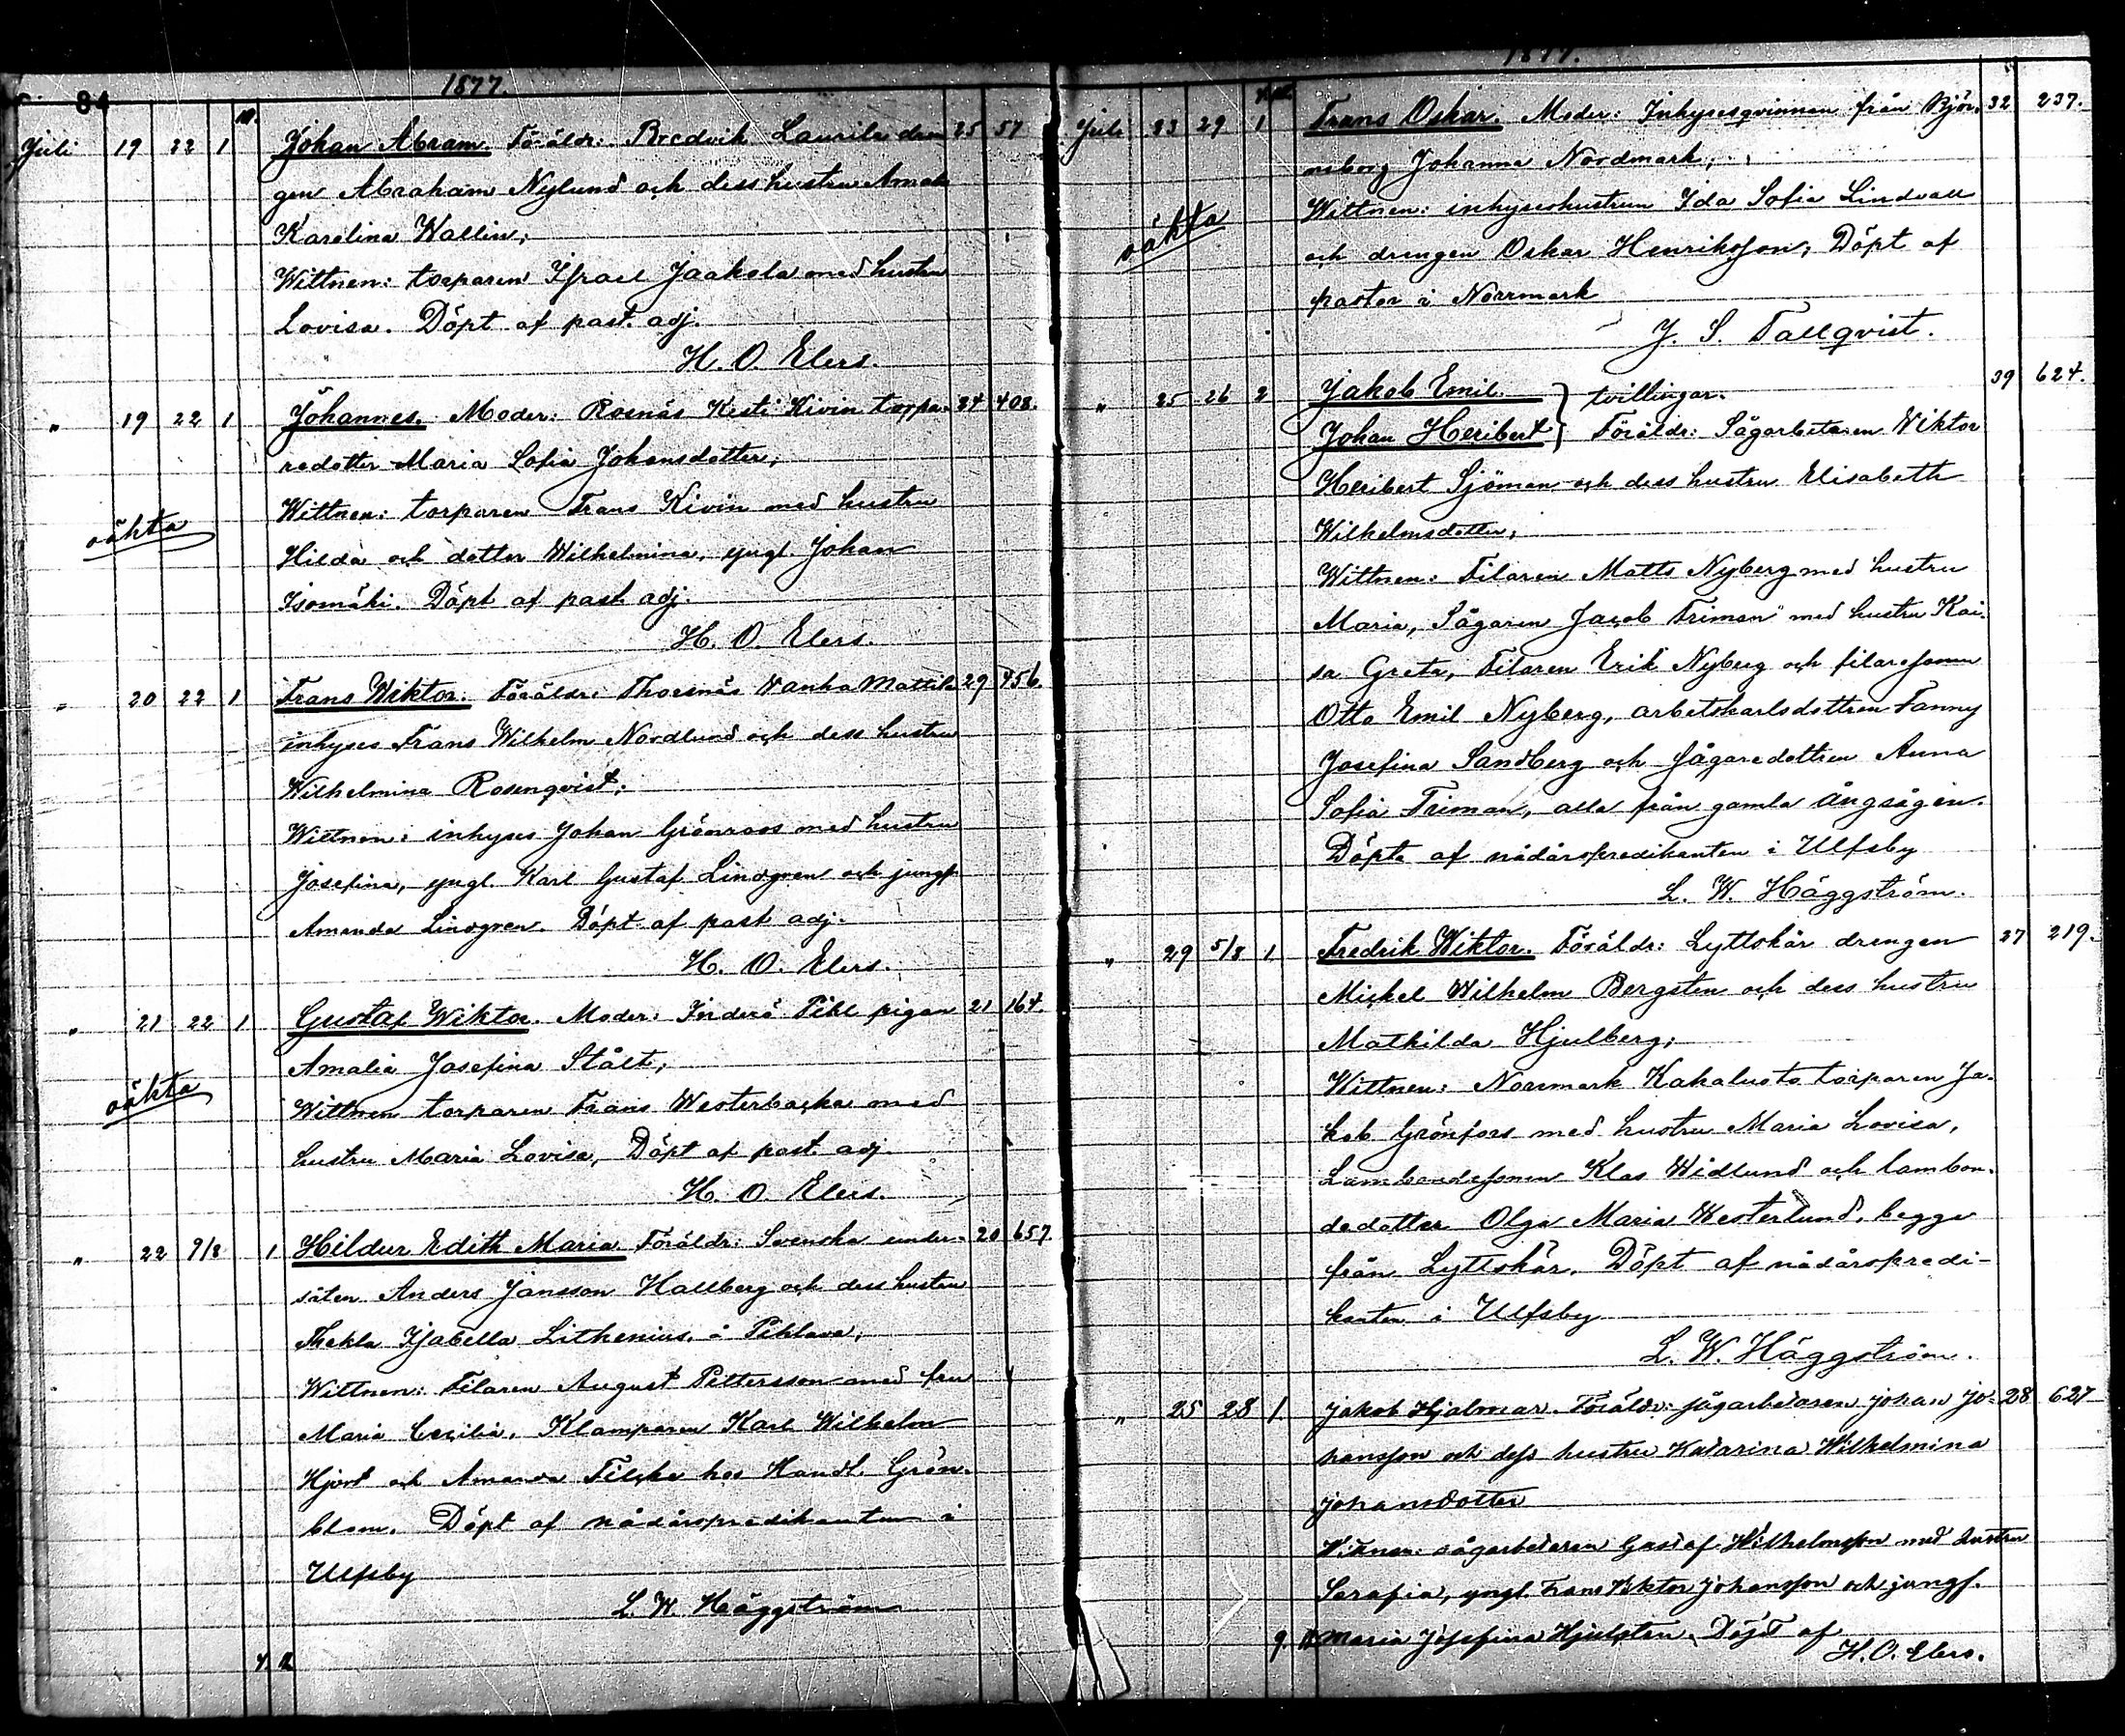 84
1877.
Juli 19 22 1 Johan Abram. Föräldr: Bredvik Laurila dren 25 57
gen Abraham Nylund och dess hustru Amal.
Karolina Wallin;
Wittnen: torparen Israel Jaakola med hustru
Lovisa. Döpt af past. adj.
H. O. Elers.
" 19 22 1 Johannes. Moder: Rosnäs Kesti Kivin torpa- 24 408.
redotter Maria Sofia Johansdotter;
oäkta
Wittnen: torparen Frans Kivin med hustru
Hilda och dotter Wilhelmina, yngl. Johan
Isomäki. Döpt af past. adj.
H. O. Elers.
" 20 22 1 Frans Wiktor. Föräldr: Thorsnäs Vanha Mattila 29 456.
inhyses Frans Wilhelm Nordlund och dess hustru
Wilhelmina Rosenqvist;
Wittnen: inhyses Johan Grönroos med hustru
Josefina, yngl. Karl Gustaf Lindgren och jungf.
Amanda Lindgren. Döpt af past. adj.
H. O. Elers.
" 21 22 1 Gustaf Wiktor. Moder: Inderö Pihl pigan 21 164.
Amalia Josefina Stålt;
oäkta
Wittnen torparen Frans Westerbacka med
hustru Maria Lovisa, Döpt af past. adj.
H. O. Elers.
" 22 9/8 1 Hildur Edith Maria Föräldr: Svenska under- 20 657.
såten Anders Jansson Hallberg och dess hustru
Thekla Isabella Lithenius, å Pihlava;
Wittnen: Filaren August Pettersson med fru
Maria Cecilia, Klamparen Karl Wilhelm
Hjort och Amanda Filcka hos Handl. Grön-
blom. Döpt af nådårspredikanten i
Ulfsby
L. W. Häggström
1877.
Juli 23 29 1 Frans Oskar. Moder: Inhysesqvinnan från Björ- 32 237.
neborg Johanna Nordmark;
oäkta
Wittnen: inhyseshustrun Ida Sofia Lindvall
och drengen Oskar Henriksson; Döpt af
pastor i Norrmark
J. S. Tallqvist.
" 25 26 2 Jakob Emil. } tvillingar. 39 624.
Johan Heribert } Föräldr: Sågarbetaren Wiktor
Heribert Sjöman och dess hustru Elisabeth
Wilhelmsdotter;
Wittnen: Filaren Matts Nyberg med hustru
Maria, Sågaren Jacob Friman med hustru Kai-
sa Greta, Filaren Erik Nyberg och filaresonen
Otto Emil Nyberg, arbetskarlsdottren Fanny
Josefina Sandberg och sågaredottren Anna
Sofia Friman, alla från gamla ångsågen.
Döpte af nådårspredikanten i Ulfsby
L. W. Häggström.
" 29 5/8 1 Fredrik Wiktor. Föräldr: Lyttskär drengen 27 219.
Mickel Wilhelm Bergsten och dess hustru
Mathilda Hjulberg;
Wittnen: Norrmark Kahaluoto torparen Ja-
kob Grönfors med hustru Maria Lovisa,
Lambondesonen Klas Widlund och lambon-
dedotter Olga Maria Westerlund, begge
från Lyttskär. Döpt af nådårspredi-
kanten i Ulfsby
L. W. Häggström.
" 25 28 1 Jakob Hjalmar. Föräldr: sågarbetaren Johan Jo- 28 627
hansson och dess hustru Katarina Wilhelmina
Johansdotter
Wittnen: sågarbetaren Gustaf Wilhelmsson med hustru
Serafia, yngl. Frans Viktor Johansson och jungf.
Maria Josefina Hjulsten. Döpt af
H. O. Elers.